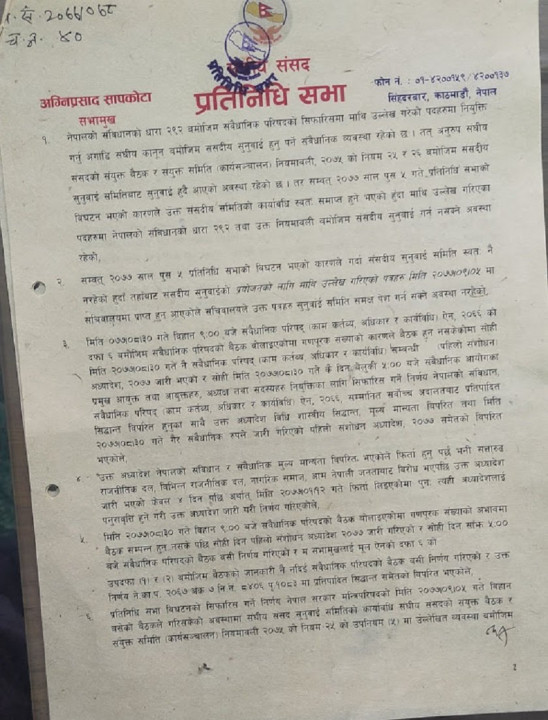 च.नं. ४०
संघीय संसद
प्रतिनिधि सभा
अग्निप्रसाद सापकोटा
सभामुख
फोन नं. : ०१-४२००१५९/४२००१३७
सिंहदरबार, काठमाडौं, नेपाल
१. नेपालको संविधानको धारा २९२ बमोजिम संवैधानिक परिषदको सिफारिसमा माथि उल्लेख गरिएका पदहरुमा नियुक्ति
गर्नु अगाडि संघीय कानुन बमोजिम संसदीय सुनुवाई हुनु पर्ने संवैधानिक व्यवस्था रहेको छ । तत् अनुरुप संघीय
संसदको संयुक्त बैठक र संयुक्त समिति (कार्यसञ्चालन) नियमावली, २०७५ को नियम २५ र २६ बमोजिम संसदीय
सुनुवाई समितिबाट सुनुवाई हुदै आएको अवस्था रहेको छ । तर सम्वत् २०७७ साल पुस ५ गते प्रतिनिधि सभाको
विघटन भएको कारणले उक्त संसदीय समितिको कार्यावधि स्वतः समाप्त हुन भएको हुँदा माथि उल्लेख गरिएका
पदहरुमा नेपालको संविधानको धारा २९२ तथा उक्त नियमावली बमोजिम संसदीय सुनुवाई गर्न नसक्ने अवस्था
रहेको,
२. सम्वत् २०७७ साल पुस ५ प्रतिनिधि सभाको विघटन भएको कारणले गर्दा संसदीय सुनुवाई समिति स्वतः नै
नरहेको हुदाँ तहाँबाट संसदीय सुनुवाईको प्रयोजनको लागि माथि उल्लेख गरिएको पत्रहरु मिति २०७७/०९/०५ मा
सचिवालयमा प्राप्त हुन आएकोले सचिवालयले उक्त पत्रहरु सुनुवाई समिति समक्ष पेश गर्न सक्ने अवस्था नरहेको,
३. मिति २०७७/०८/३० गते विहान ९.०० बजे संवैधानिक परिषद् (काम कर्तव्य, अधिकार र कार्यविधि) ऐन, २०६६ को
दफा ६ बमोजिम संवैधानिक परिषदको बैठक बोलाइएकोमा गणपुरक संख्याको कारणले बैठक हुन नसकेकोमा सोही
मिति २०७७/०८/३० गते नै संवैधानिक परिषद् (काम कर्तव्य अधिकार र कार्यविधि) सम्बन्धी (पहिलो संशोधन)
अध्यादेश, २०७७ जारी भएको र सोही मिति २०७७/०८/३० गते कै दिन बेलुकी ५.०० बजे संवैधानिक आयोगका
प्रमुख आयुक्त तथा आयुक्तहरु, अध्यक्ष तथा सदस्यहरु नियुक्तिका लागि सिफारिस गर्ने निर्णय नेपालको संविधान,
संवैधानिक परिषद (काम कर्तव्य, अधिकार र कार्यविधि) ऐन, २०६६, सम्मानित सर्वोच्च अदालतबाट प्रतिपादित
सिद्धान्त विपरित हुनुका साथै उक्त अध्यादेश विधि शास्त्रीय सिद्धान्त, मूल्य मान्यता विपरित तथा मिति
२०७७/०८/३० गते गैर संवैधानिक रुपले जारी गरिएको पहिलो संशोधन अध्यादेश, २०७७ समेतको विपरित
भएकोले,
४. उक्त अध्यादेश नेपालको संविधान र संवैधानिक मुल्य मान्यता विपरित भएकोले फिर्ता हुनु पर्छ भनी सत्तारुढ
राजनीतिक दल, विभिन्न राजनीतिक दल, नागरिक समाज, आम नेपाली जनताबाट विरोध भएपछि उक्त अध्यादेश
जारी भएको केवल ४ दिन पछि अर्थात् मिति २०७७/०९/१२ गते फिर्ता लिइएकोमा पुनः त्यही अध्यादेशलाई
पुनरावृत्ति हुने गरी उक्त अध्यादेश जारी गरी निर्णय गरिएकोले,
५. मिति २०७७/०८/३० गते विहान ९.०० बजे संवैधानिक परिषदको बैठक बोलाइएकोमा गणपुरक संख्याको अभावमा
बैठक सम्पन्न हुन नसके पछि सोही दिन पहिलो संशोधन अध्यादेश २०७७ जारी गरिएको र सोही दिन साँझ ५.००
बजे संवैधानिक परिषदको बैठक बसी निर्णय गरिएको र म सभामुखलाई मूल ऐनको दफा ६ को
उपदफा (१) र (२) बमोजिम बैठकको जानकारी नै नदिई संवैधानिक परिषदको बैठक बसी निर्णय गरिएको र उक्त
निर्णय ने.का.प. २०६७ अंक ७ नि.नं. ८४०६ पृ.१०८२ मा प्रतिपादित सिद्धान्त समेतको विपरित भएकोले,
६. प्रतिनिधि सभा विघटनको सिफारिस गर्ने निर्णय नेपाल सरकार मन्त्रिपरिषदको मिति २०७७/०९/०५ गते विहान
बसेको बैठकले गरिसकेको अवस्थामा संघीय संसद सुनुवाई समितिको कार्यावधि संघीय संसदको संयुक्त बैठक र
संयुक्त समिति (कार्यसञ्चालन) नियमावली २०७५ को नियम २५ को उपनियम (५) मा उल्लेखित व्यवस्था बमोजिम